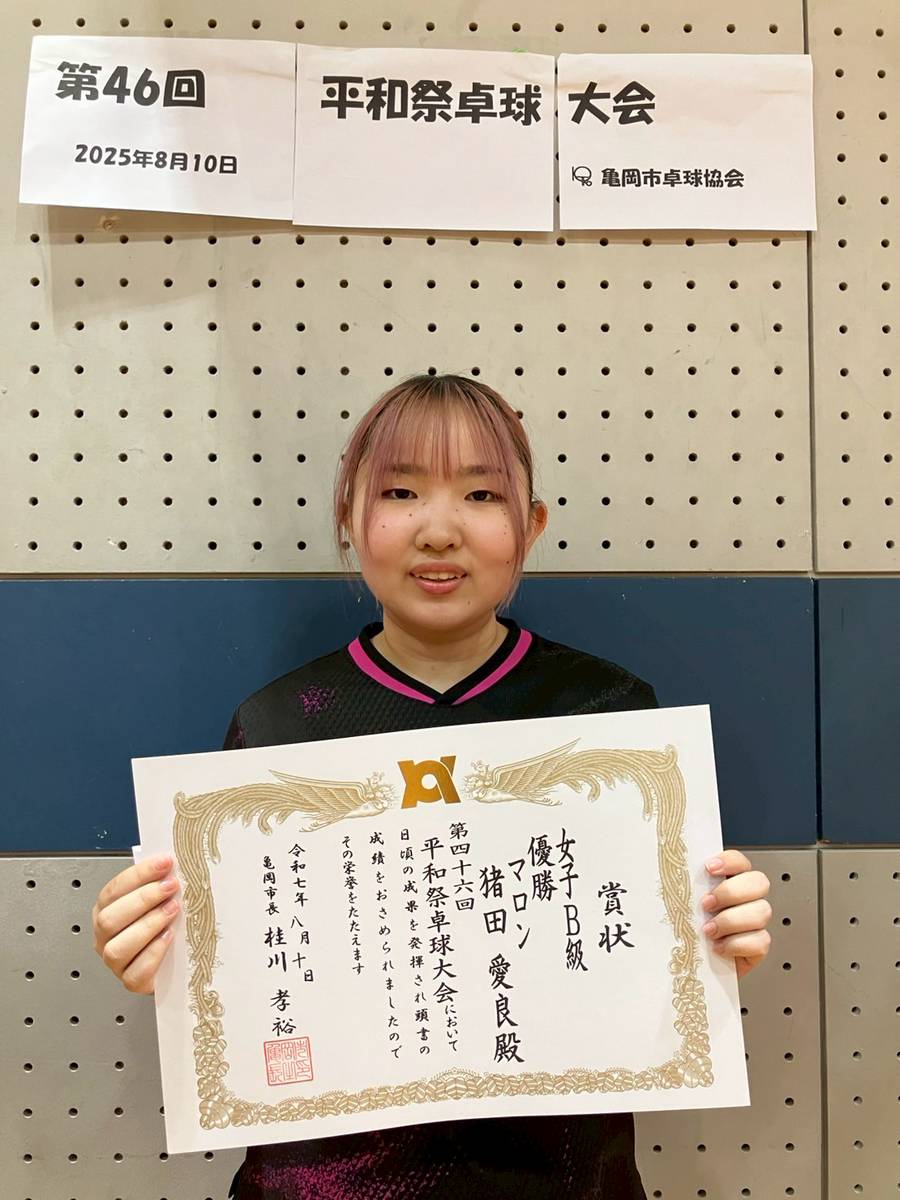 第46回 平和祭卓球 大会
2025年8月10日
亀岡市卓球協会
賞状
女子B級
優勝
マロン
猪田 愛良殿
第四十六回
平和祭卓球大会において
日頃の成果を発揮され頭書の
成績をおさめられましたので
その栄誉をたたえます
令和七年八月十日
亀岡市長 桂川 孝裕